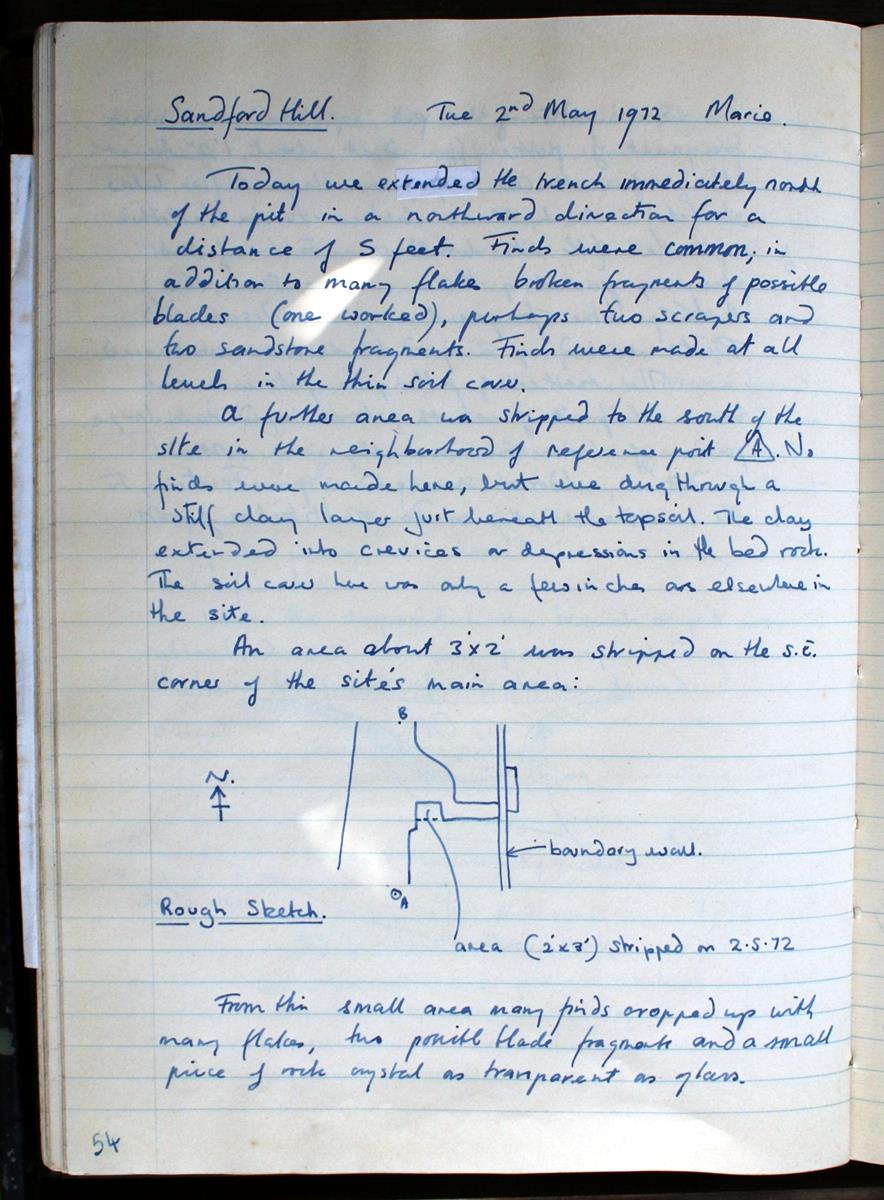 Sandford Hill. Tue 2nd May 1972 Mario.
Today we extended the trench immediately north
of the pit in a northward direction for a
distance of 5 feet. Finds were common; in
addition to many flakes broken fragments of possible
blades (one worked), perhaps two scrapers and
two sandstone fragments. Finds were made at all
levels in the thin soil cover.
A further area was stripped to the south of the
site in the neighbourhood of reference point A. No
finds were made here, but we dug through a
stiff clay layer just beneath the topsoil. The clay
extended into crevices or depressions in the bed rock.
The soil cover here was only a few inches as elsewhere in
the site.
An area about 3'x2' was stripped on the S.E.
corner of the site's main area:
B
N.
boundary wall.
A
Rough Sketch.
area (2'x3') stripped on 2.5.72
From this small area many finds cropped up with
many flakes, two possible blade fragments and a small
piece of rock crystal as transparent as glass.
54